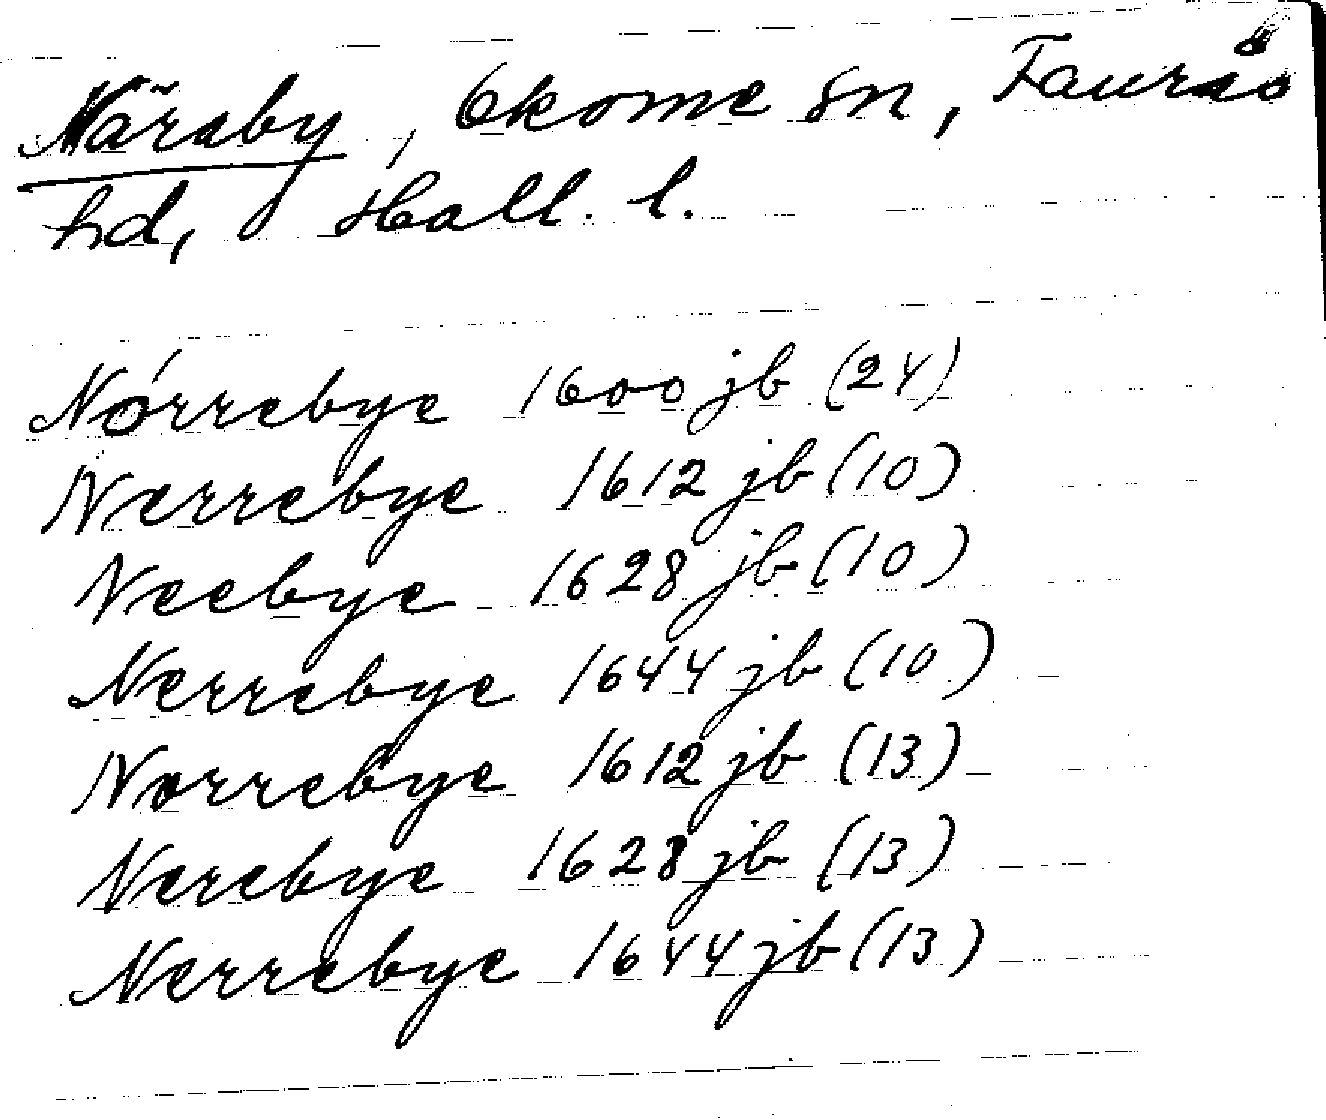 Näraby, Okome sn, Faurås
hd, Hall. l.
Nórrebye 1600 jb (24)
Nerrebye 1612 jb (10)
Neebye 1628 jb (10)
Nerrebye 1644 jb (10)
Norrebye 1612 jb (13)
Nerebye 1628 jb (13)
Nerrebye 1644 jb (13)